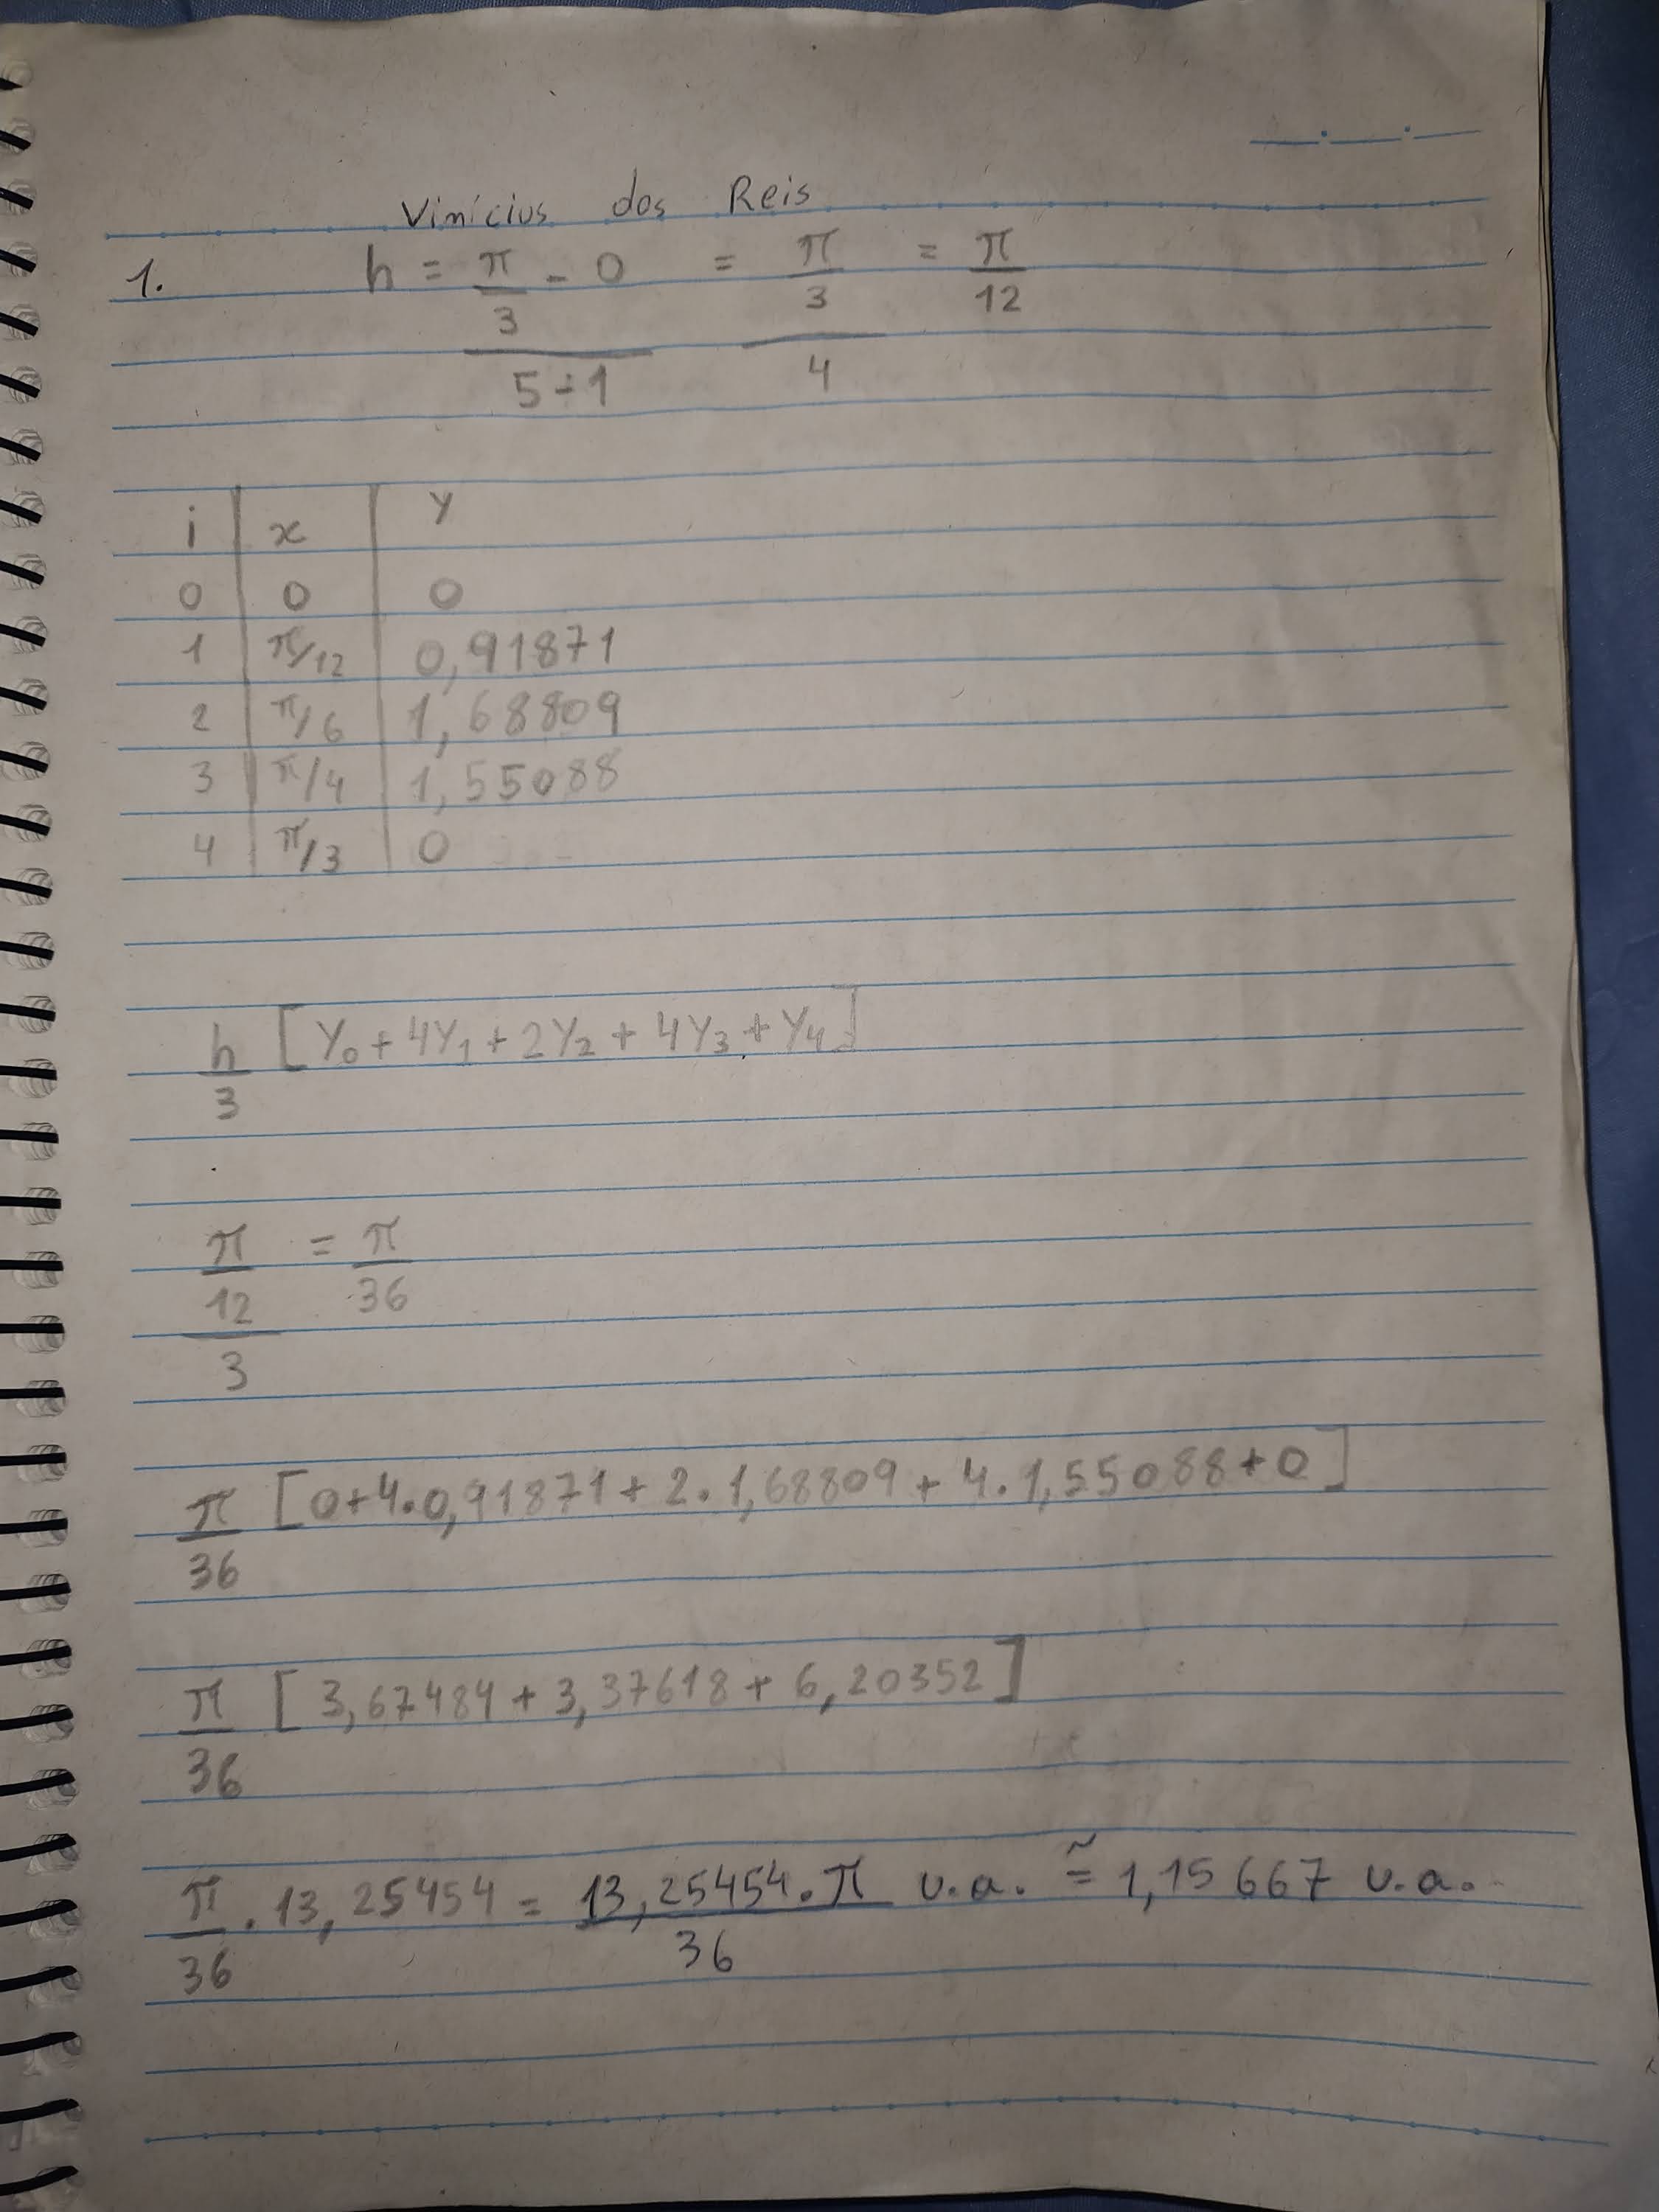 Vinícius dos Reis
1. h = π/3 - 0 / 5-1 = π/3 / 4 = π/12
i | x | y
0 | 0 | 0
1 | π/12 | 0,91871
2 | π/6 | 1,68809
3 | π/4 | 1,55088
4 | π/3 | 0
h/3 [y₀ + 4y₁ + 2y₂ + 4y₃ + y₄]
π/12 / 3 = π/36
π/36 [0+4.0,91871+2.1,68809+4.1,55088+0]
π/36 [3,67484+3,37618+6,20352]
π/36 . 13,25454 = 13,25454.π/36 u.a. ≅ 1,15667 u.a.